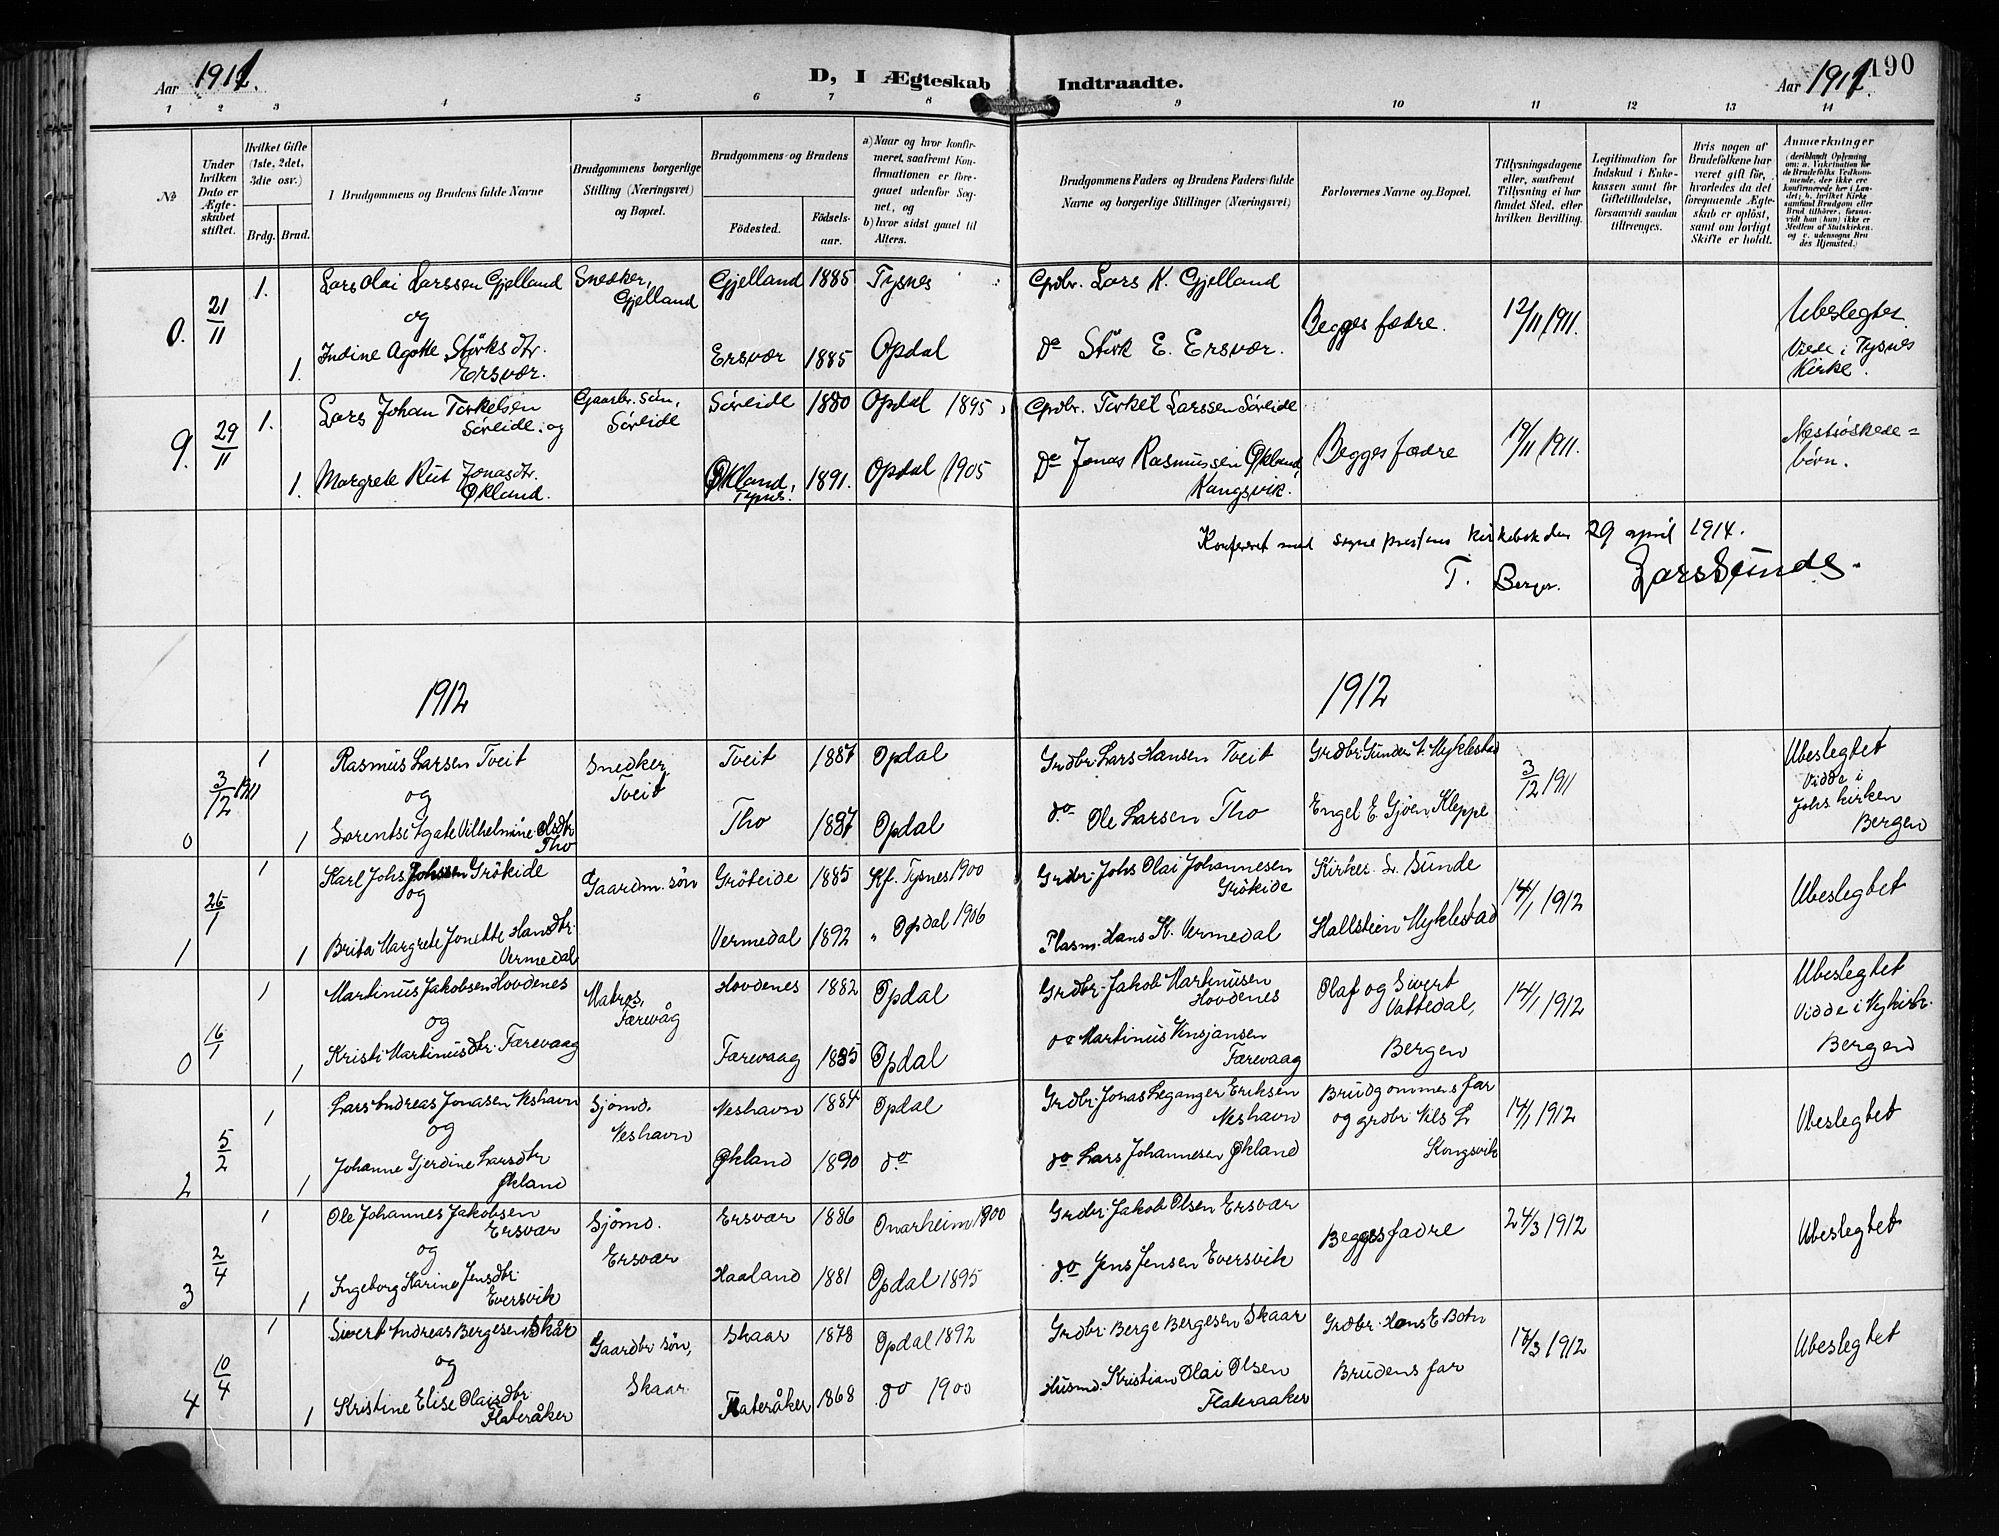 Aar 1911.
D, I Ægteskab Indtraadte.
Aar 1911.
190
1 2 3 4 5 6 7 8 9 10 11 12 13 14
No
Under hvilken Dato er Ægteskabet stiftet.
Hvilket Gifte (1ste, 2det, 3die osv.)
Brdg. Brud.
I Brudgommens og Brudens fulde Navne
Brudgommens borgerlige Stilling (Næringsvei) og Bopæl.
Brudgommens og Brudens
Födested.
Födselsaar.
a) Naar og hvor konfirmeret, saafremt Konfirmationen er foregaaet udenfor Sognet, og
b) hvor sidst gaaet til Alters.
Brudgommens Faders og Brudens Faders fulde Navne og borgerlige Stillinger (Næringsvei)
Forlovernes Navne og Bopæl.
Tillysningsdagene eller, saafremt Tillysning ei har fundet Sted, efter hvilken Bevilling.
Legitimation for Indskud i Enkekassen samt for Giftetilladelse, forsaavidt saadan tiltrænges.
Hvis nogen af Brudefolkene har været gift før, hvorledes da det foregaaende Ægteskab er oplöst, samt om lovligt Skifte er holdt.
Anmærkninger
(deriblandt Oplysning om: a. Vakcination for de Brudefolks Vedkommende, der ikke ere konfirmerede her i Landet; b. hvilket Kirkesamfund Brudgom eller Brud tilhörer, forsaavidt han (hun) ikke er Medlem af Statskirken, og c. udensogns Brudes Hjemsted.)
0. 21/11 1. Lars Olai Larssen Gjelland Snedker, Gjelland Gjelland 1885 Tysnes Grdbr. Lars K. Gjelland Begges fædre. 12/11 1911. Ubeslegtet. Viede i Tysnes Kirke.
og
1. Indine Agotte Störksdtr. Ersvær. Ersvær 1885 Opdal do Störk E. Ersvær.
9. 29/11 1. Lars Johan Torkelsen Sörleide. og Gaardbr. sön, Sörleide Sörleide 1880 Opdal 1895 Grdbr. Torkel Larssen Sörleide Begges fædre 19/11 1911. Næstsöskedebörn.
1. Margrete Rut Jonasdtr. Økland. Økland, Tysnes. 1891. Opdal 1905 do Jonas Rasmussen Økland, Kangsvik.
Konfereret med sogneprestens kirkebok den 29 april 1914.
T. Berger. Lars Sunde.
1912 1912
0 3/12 1911 1 Rasmus Larsen Tveit Snedker Tveit Tveit 1887 Opdal Grdbr. Lars Hansen Tveit Grdbr. Gunder T. Myklestad 3/12 1911 Ubeslegtet Vidde i Johs kirken Bergen
og
1 Lorentse Agate Vilhelmine Olsdtr Tho Tho 1887 Opdal do Ole Larsen Tho Engel E Gjöen Kleppe
1 26/1 1 Karl Johs Johssen Grökide Gaardm. søn Grökeide 1885 Kf. Tysnes 1900 Grdbr. Johs Olai Johannesen Grökide Kirkes. L. Sunde 14/1 1912 Ubeslegtet
og
1 Brita Margrete Jonette Hansdtr. Vermedal Vermedal 1892 " Opdal 1906 Plasm. Hans K. Vermedal Hallstein Myklestad
0 16/1 1 Martinus Jakobsen Hovdenes Matros, Færevåg Hovdenes 1882 Opdal Grdbr. Jakob Martinusen Hovdenes Olaf og Sivert Vattedal, Bergen 14/1 1912 Ubeslegtet Vidde i Nykirk. Bergen
og
1 Kristi Martinusdtr. Færevaag Færevaag 1885 Opdal do Martinus Vinsjansen Færevaag
2 5/2 1 Lars Andreas Jonasen Neshavn Sjömd. Neshavn Neshavn 1884 Opdal Grdbr. Jonas Leganger Eriksen Neshavn Brudgommens far og grdbr Nils L Kongsvik 14/1 1912 Ubeslegtet
og
1 Johanne Gjerdine Larsdtr Økland Økland 1890 do do Lars Johannesen Økland
3 2/4 1 Ole Johannes Jakobsen Ersvær Sjömd. Ersvær Ersvær 1886 Onarheim 1900 Grdbr. Jakob Olsen Ersvær Begges fædre 24/3 1912 Ubeslegtet
og
1 Ingeborg Karine Jensdtr. Eversvik Haaland 1881 Opdal 1895 do Jens Jensen Eversvik
4 10/4 1 Sivert Andreas Bergesen Skår Gaardbr søn, Skaar Skaar 1878 Opdal 1892 Grdbr. Berge Bergesen Skaar Grdbr. Hans E Botn 17/3 1912 Ubeslegtet
og
1 Kristine Elise Olaisdtr. Flateråker Flateråker 1868 do 1900 Husmd. Kristian Olai Olsen Flateraaker Brudens far